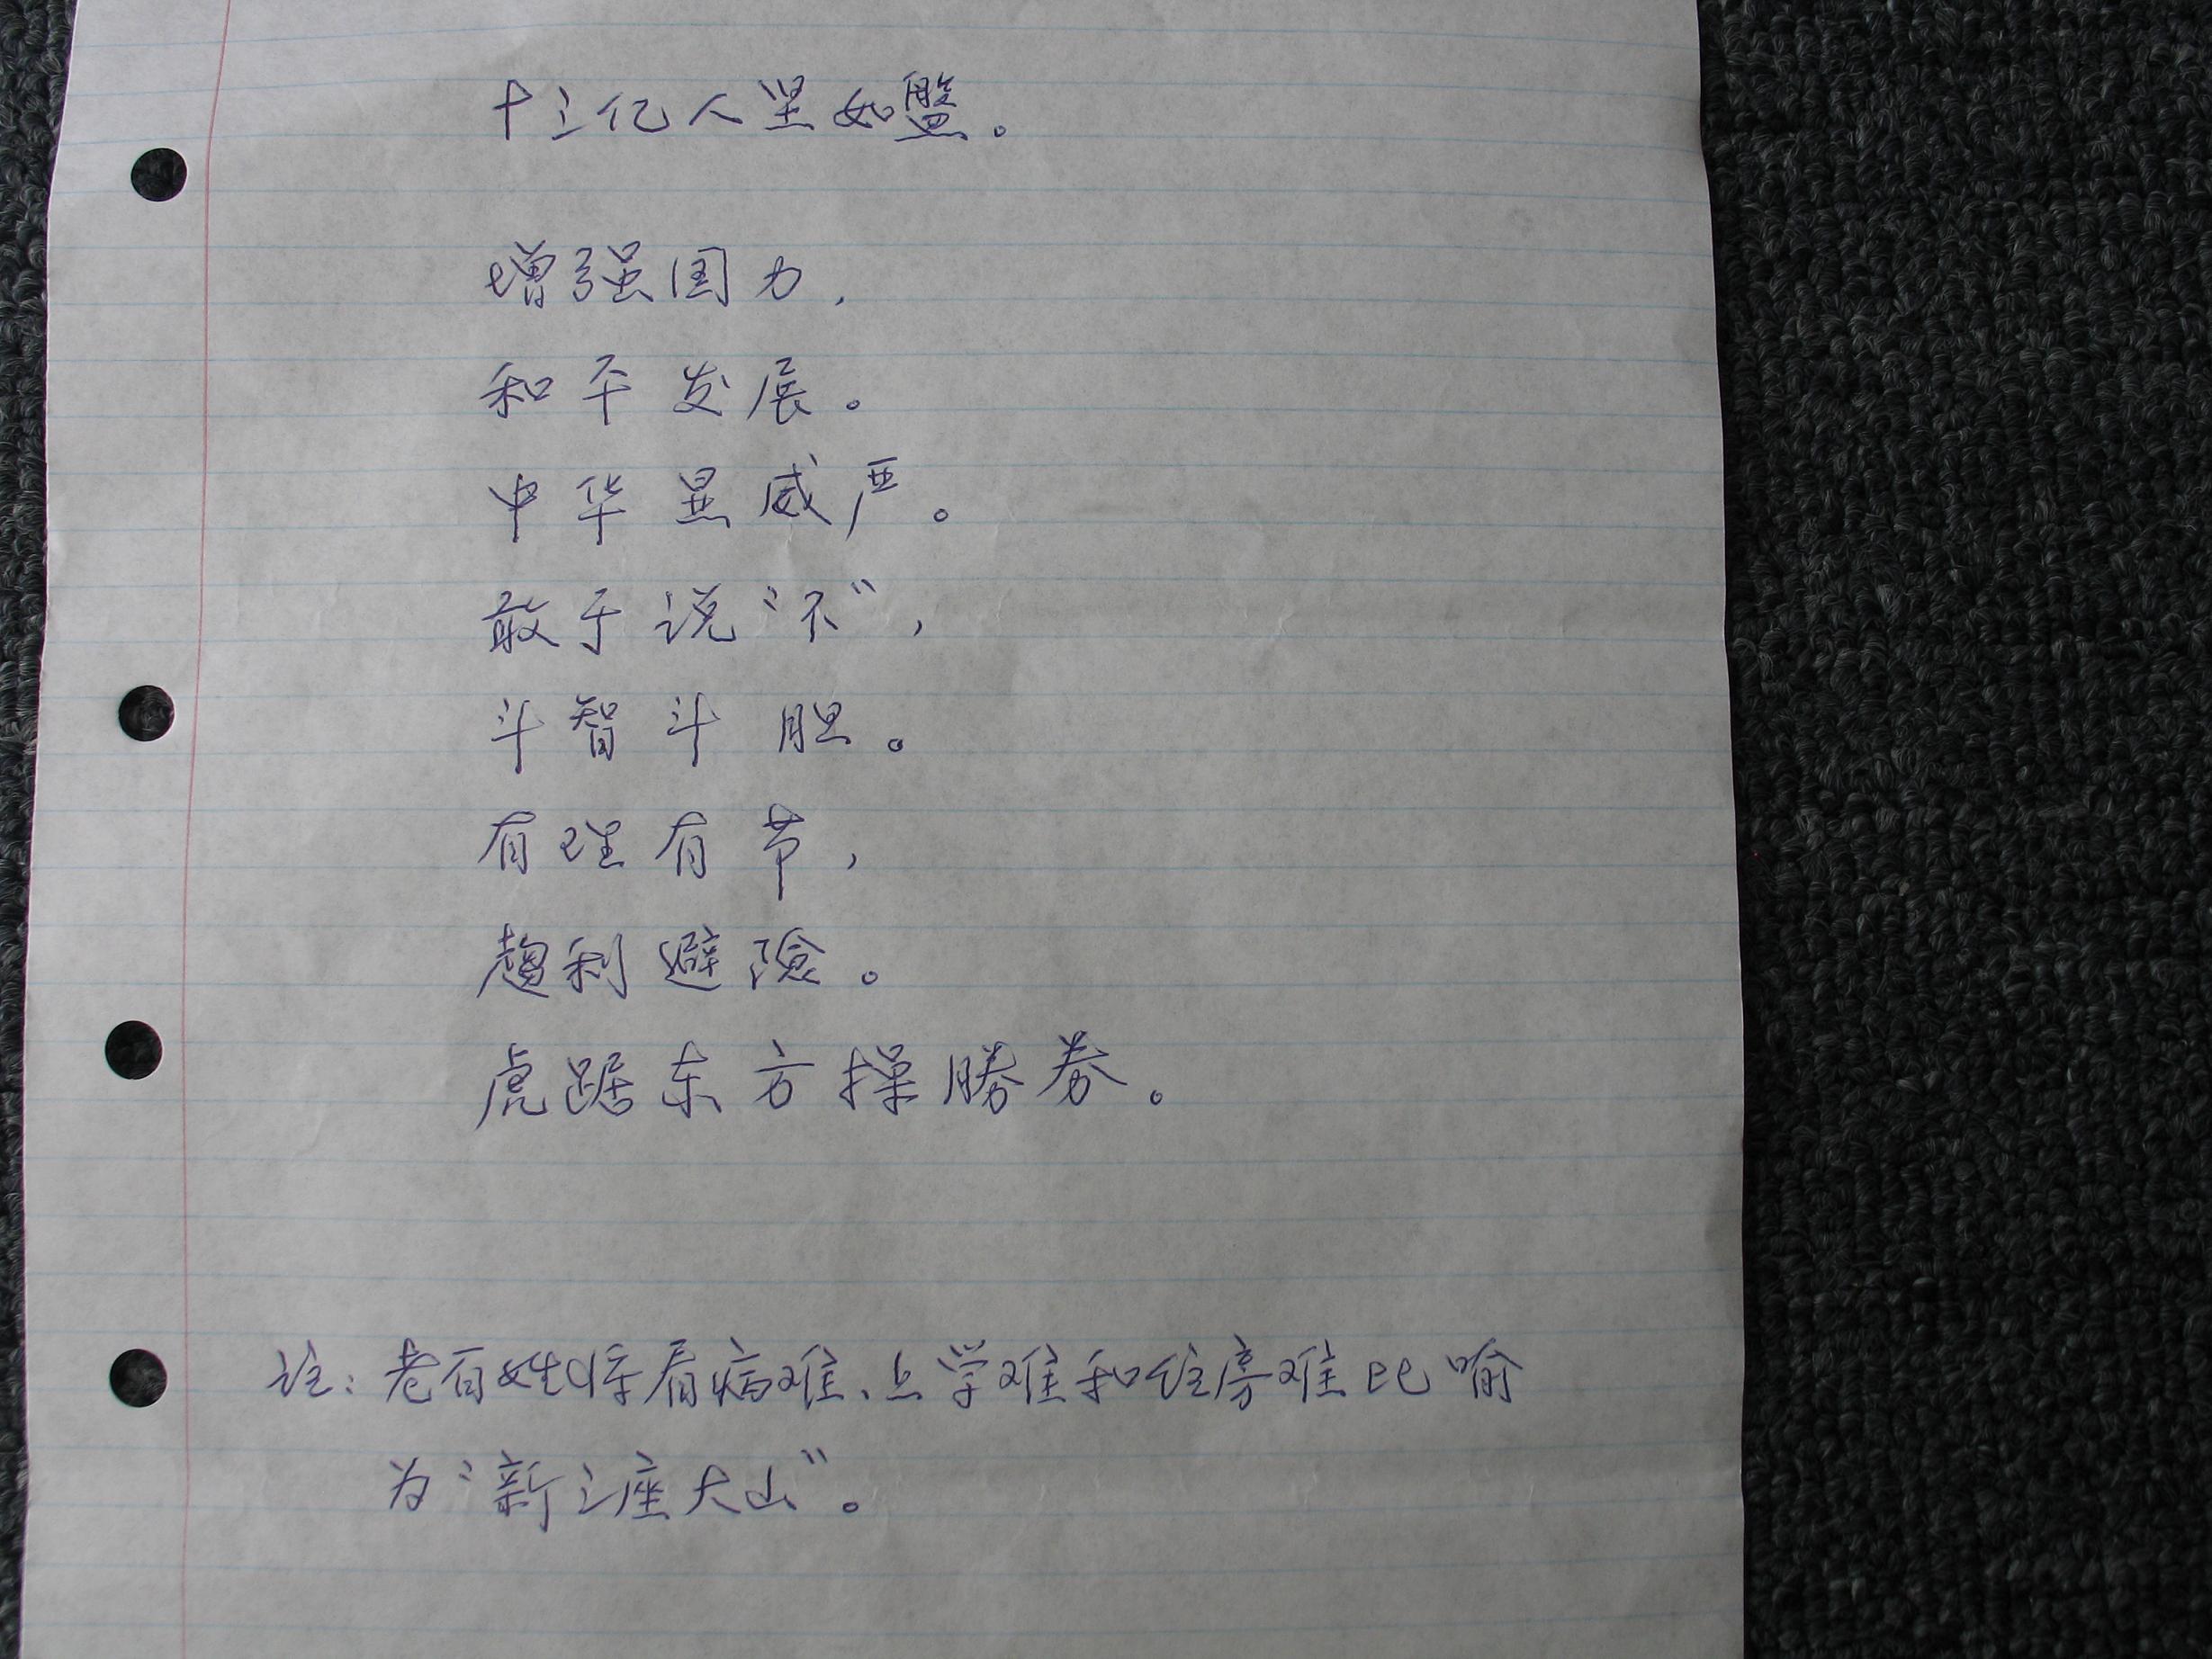 十三亿人坚如盤。
增强国力，
和平发展。
中华显威严。
敢于说“不”，
斗智斗胆。
有理有节，
趨利避險。
虎踞东方操勝券。
注：老百姓将看病难、上学难和住房难比喻
为“新三座大山”。